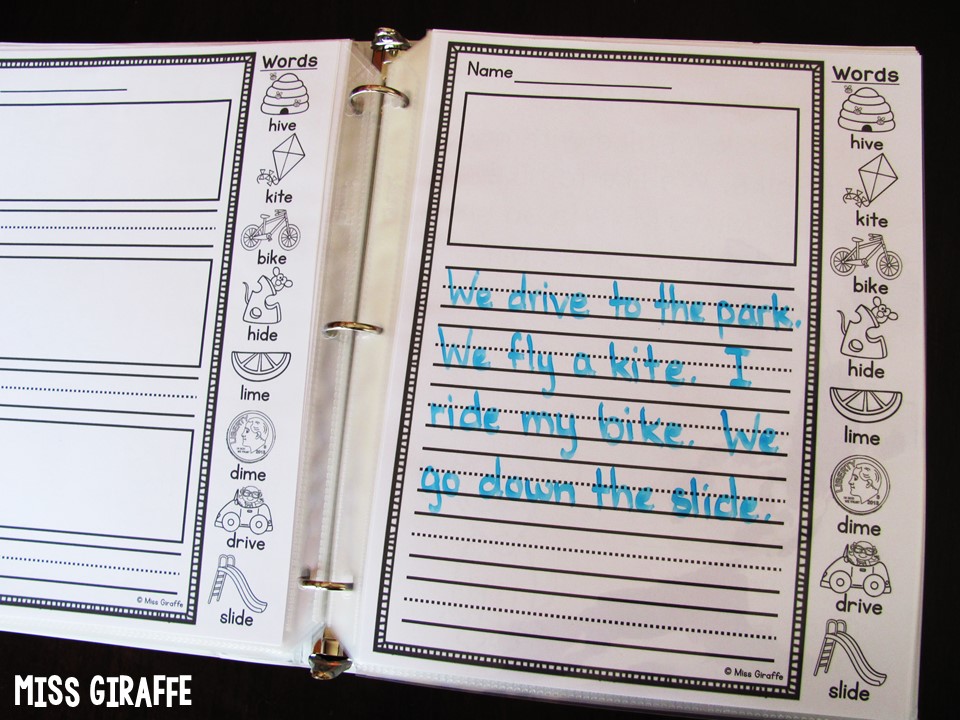 Words
hive
kite
bike
hide
lime
LIBERTY
dime
drive
slide
© Miss Giraffe
Name
We drive to the park.
We fly a kite. I
ride my bike. We
go down the slide.
© Miss Giraffe
Words
hive
kite
bike
hide
lime
LIBERTY
dime
drive
slide
MISS GIRAFFE